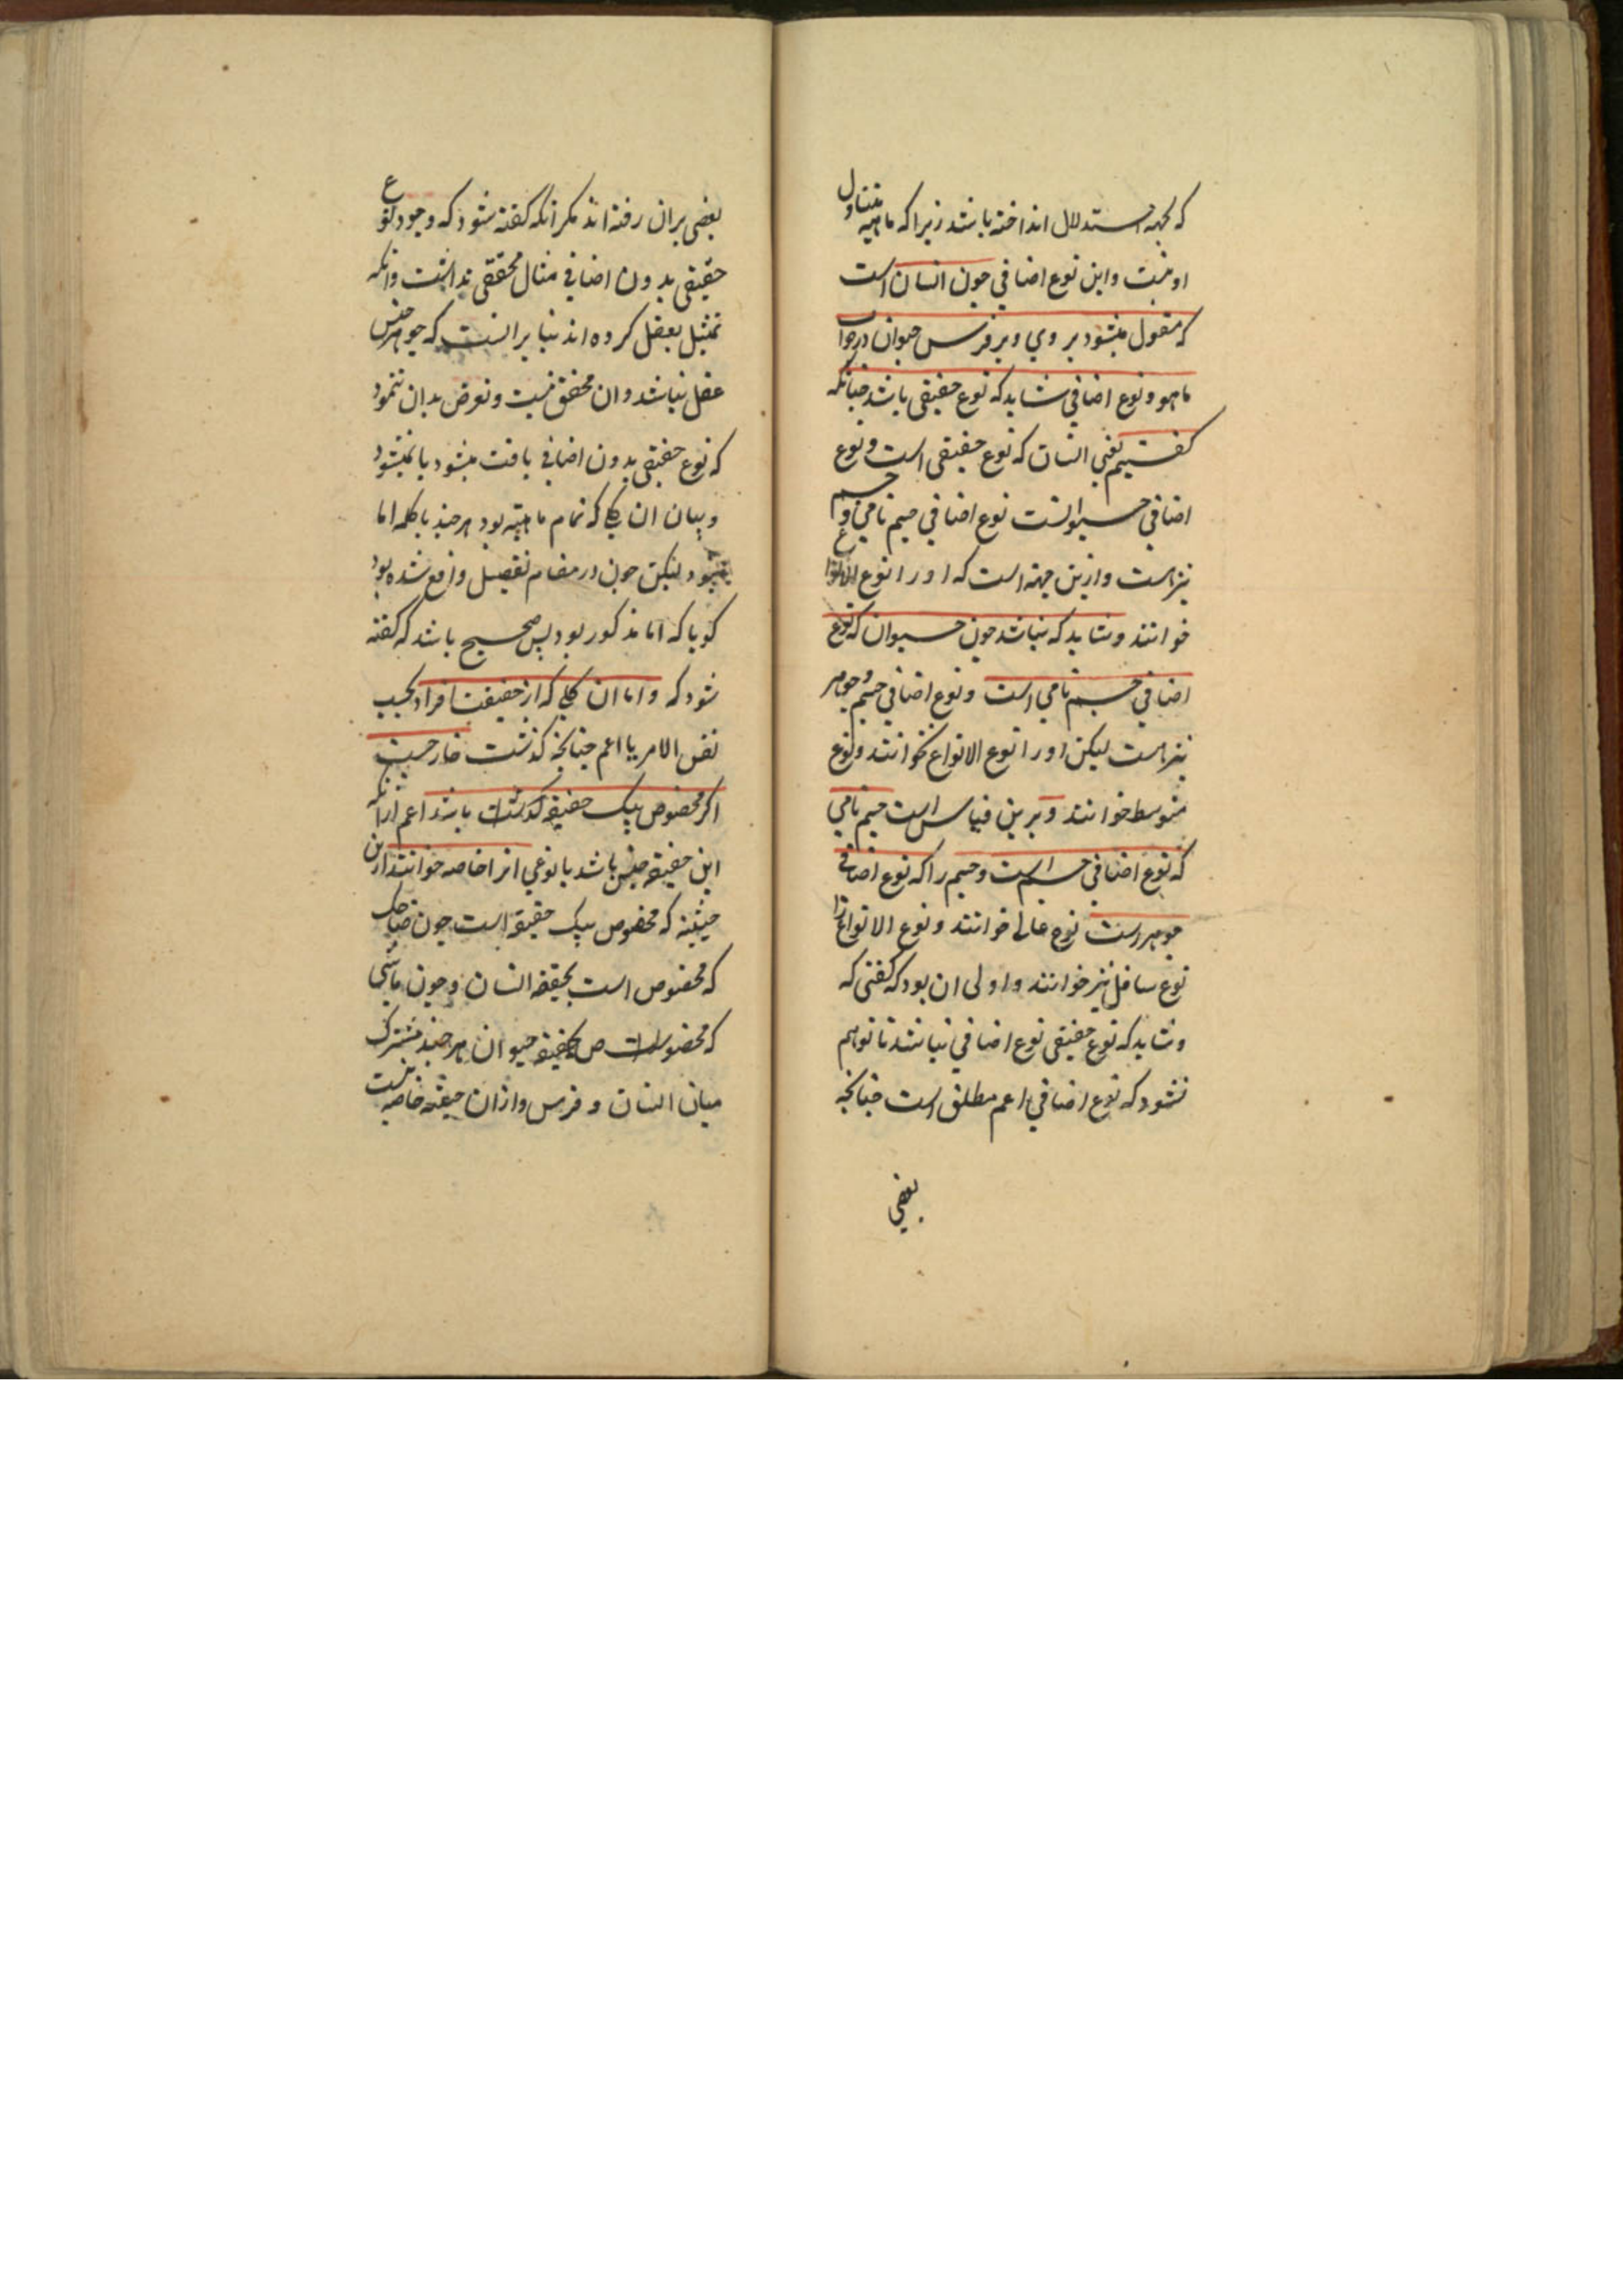 که بجهه استدلال انداخته باشند زیرا که ماهیه متناول
او نیست و این نوع اضافی چون انسان است
که مقول میشود بر وی و بر فرس حیوان در جواب
ماهو و نوع اضافی شاید که نوع حقیقی باشد چنانکه
کفتیم یعنی انسان که نوع حقیقی است و نوع
اضافی حیوانست نوع اضافی جسم نامی و جسم
نیز است و ازین جهه است که او را نوع الانواع
خوانند و شاید که نباشد چون حیوان که نوع
اضافی جسم نامی است و نوع اضافی جسم و جوهر
نیز است لیکن او را نوع الانواع نخوانند و نوع
متوسط خوانند و برین قیاس است جسم نامی
که نوع اضافی جسم است و جسم را که نوع اضافی
جوهر است نوع عالی خوانند و نوع الانواع را
نوع سافل نیز خوانند و اولی ان بود که کفتی که
و شاید که نوع حقیقی نوع اضافی نباشد تا توهم
نشود که نوع اضافی اعم مطلق است چنانچه
بعضی
بعضی بران رفته اند مکر انکه کفته شود که وجود نوع
حقیقی بدون اضافی مثال محققی نداشت و انکه
تمثیل بعقل کرده اند بنا برانست که جوهر جنس
عقل نباشد و ان محقق نیست و تعرض بدان ننمود
که نوع حقیقی بدون اضافی یافت میشود یا نمیشود
و بیان ان کلی که تمام ماهیه بود هر چند با کلمه اما
لیکن چون در مقام تفصیل واقع شده بود
کویا که اما مذکور بود پس صحیح باشد که کفته
شود که و اما ان کلی که از حقیقت افراد بحسب
نفس الامر یا اعم چنانچه کذشت خارجست
اکر مخصوص بیک حقیقه کذشت باشد اعم ازانکه
این حقیقه جنس باشد یا نوعی انرا خاصه خوانند ازین
حیثیه که مخصوص بیک حقیقه است چون ضاحک
که مخصوص است بحقیقه انسان و چون ماشی
که مخصوص است بحقیقه حیوان هر چند مشترک
میان انسان و فرس و ازان حیثیه خاصه نیست